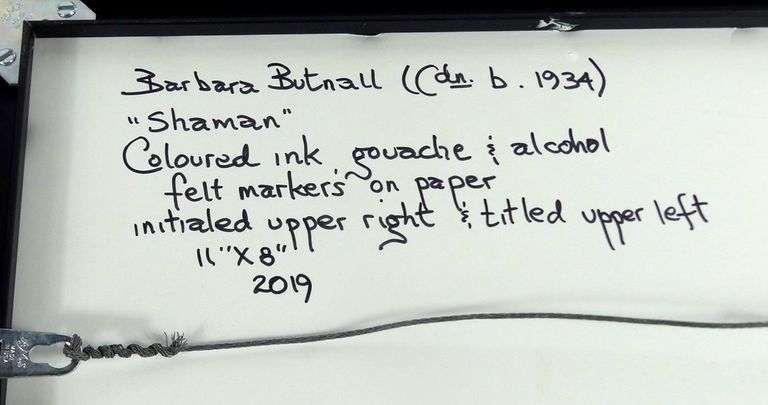 Barbara Butnall (Cdn. b. 1934)
"Shaman"
Coloured ink, gouache & alcohol
felt markers on paper
initialed upper right & titled upper left
11" X 8"
2019